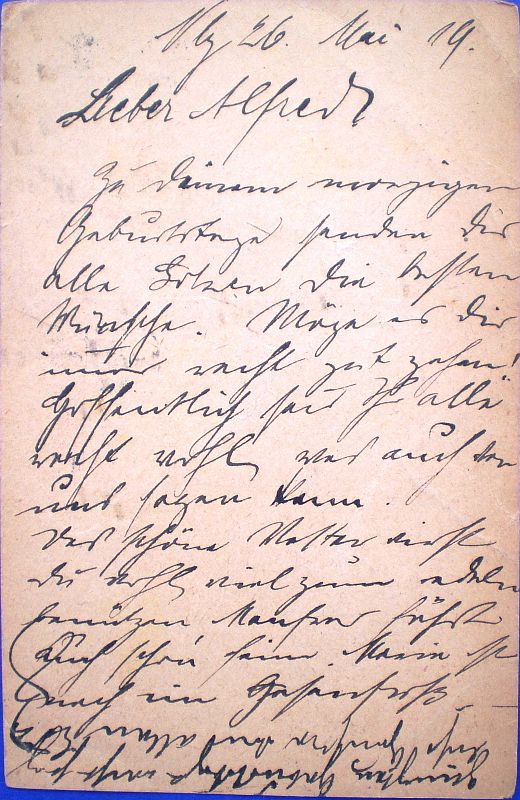 26. Mai 19.
Lieber Alfred!
Zu deinem morgigen
Geburtstage senden dir
alle die besten
Wünsche. Möge es dir
immer recht gut gehen!
Hoffentlich seid Ihr alle
recht wohl, was auch von
uns sagen kann.
Das schöne Wetter wirst
du wohl viel zum radeln
benützen. fährt
auch schon fein. Marie ist
noch im